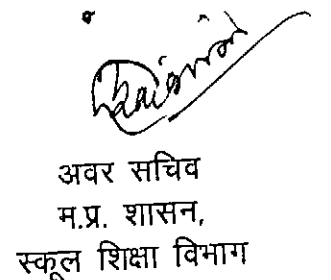 अवर सचिव
म.प्र. शासन,
स्कूल शिक्षा विभाग